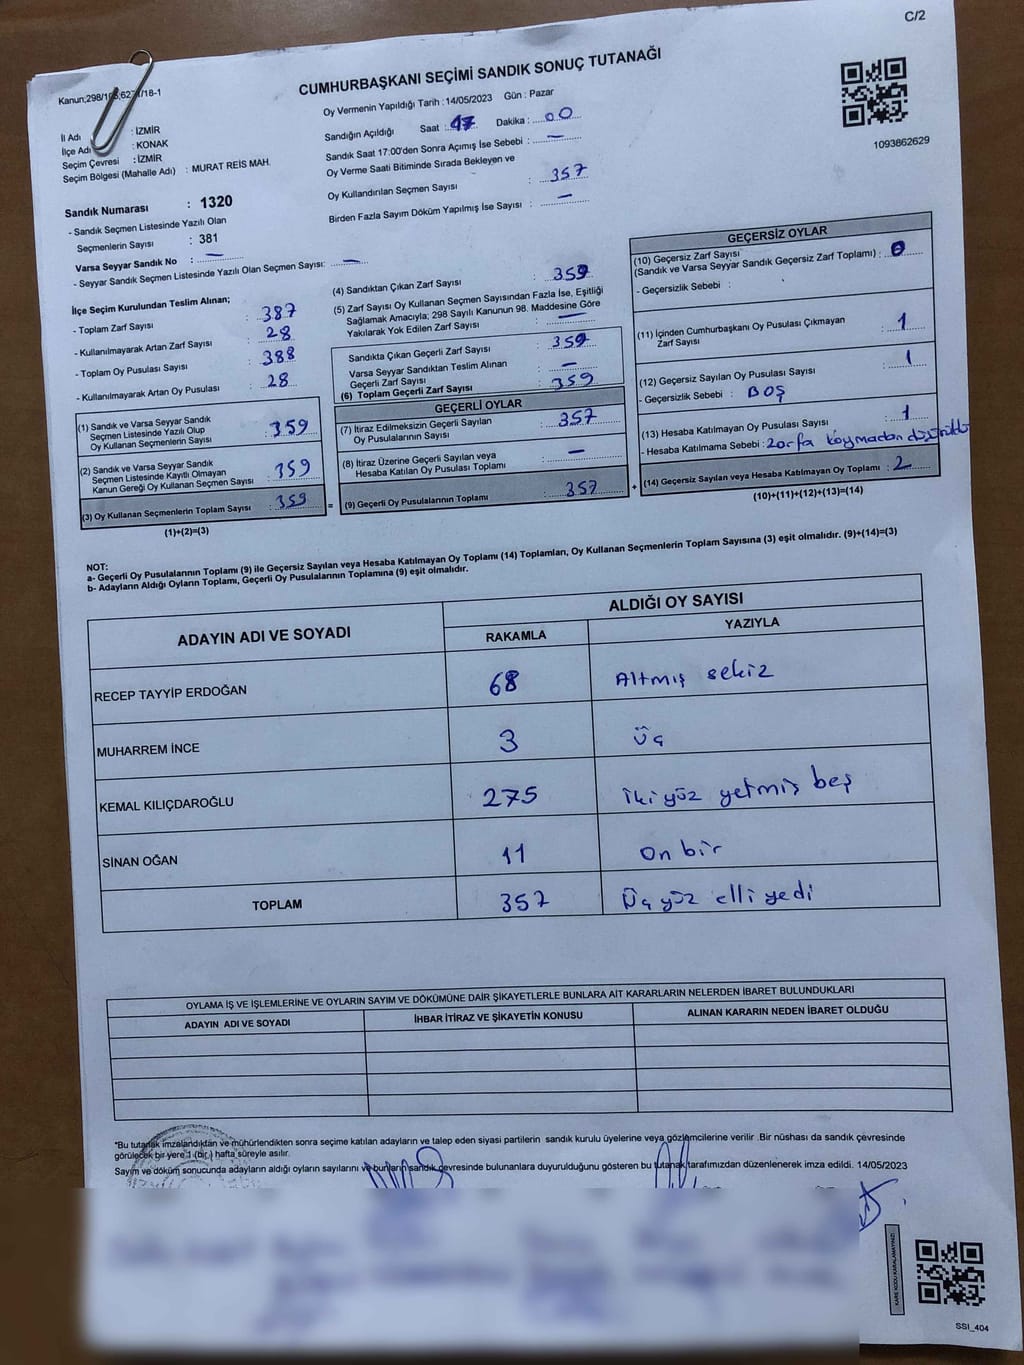 C/2
Kanun;298/105;6271/18-1
CUMHURBAŞKANI SEÇİMİ SANDIK SONUÇ TUTANAĞI
İl Adı : İZMİR
İlçe Adı : KONAK
Seçim Çevresi : İZMİR
Seçim Bölgesi (Mahalle Adı) : MURAT REİS MAH.
Oy Vermenin Yapıldığı Tarih : 14/05/2023 Gün : Pazar
Sandığın Açıldığı Saat : 17 Dakika : 00
Sandık Saat 17:00'den Sonra Açımış İse Sebebi : —
Oy Verme Saati Bitiminde Sırada Bekleyen ve
Oy Kullandırılan Seçmen Sayısı : 357
Birden Fazla Sayım Döküm Yapılmış İse Sayısı : —
1093862629
Sandık Numarası : 1320
- Sandık Seçmen Listesinde Yazılı Olan
Seçmenlerin Sayısı : 381
Varsa Seyyar Sandık No : —
- Seyyar Sandık Seçmen Listesinde Yazılı Olan Seçmen Sayısı: —
İlçe Seçim Kurulundan Teslim Alınan;
- Toplam Zarf Sayısı : 387
- Kullanılmayarak Artan Zarf Sayısı : 28
- Toplam Oy Pusulası Sayısı : 388
- Kullanılmayarak Artan Oy Pusulası : 28
(1) Sandık ve Varsa Seyyar Sandık
Seçmen Listesinde Yazılı Olup
Oy Kullanan Seçmenlerin Sayısı : 359
(2) Sandık ve Varsa Seyyar Sandık
Seçmen Listesinde Kayıtlı Olmayan
Kanun Gereği Oy Kullanan Seçmen Sayısı : 359
(3) Oy Kullanan Seçmenlerin Toplam Sayısı : 359
(1)+(2)=(3)
=
(4) Sandıktan Çıkan Zarf Sayısı : 359
(5) Zarf Sayısı Oy Kullanan Seçmen Sayısından Fazla İse, Eşitliği
Sağlamak Amacıyla; 298 Sayılı Kanunun 98. Maddesine Göre
Yakılarak Yok Edilen Zarf Sayısı : —
Sandıkta Çıkan Geçerli Zarf Sayısı : 359
Varsa Seyyar Sandıktan Teslim Alınan
Geçerli Zarf Sayısı : —
(6) Toplam Geçerli Zarf Sayısı : 359
GEÇERLİ OYLAR
(7) İtiraz Edilmeksizin Geçerli Sayılan
Oy Pusulalarının Sayısı : 357
(8) İtiraz Üzerine Geçerli Sayılan veya
Hesaba Katılan Oy Pusulası Toplamı : —
(9) Geçerli Oy Pusulalarının Toplamı : 357
+
GEÇERSİZ OYLAR
(10) Geçersiz Zarf Sayısı
(Sandık ve Varsa Seyyar Sandık Geçersiz Zarf Toplamı) : 0
- Geçersizlik Sebebi :
(11) İçinden Cumhurbaşkanı Oy Pusulası Çıkmayan
Zarf Sayısı : 1
(12) Geçersiz Sayılan Oy Pusulası Sayısı : 1
- Geçersizlik Sebebi : BOŞ
(13) Hesaba Katılmayan Oy Pusulası Sayısı : 1
- Hesaba Katılmama Sebebi : Zarfa koymadan düşürüldü
(14) Geçersiz Sayılan veya Hesaba Katılmayan Oy Toplamı : 2
(10)+(11)+(12)+(13)=(14)
NOT:
a- Geçerli Oy Pusulalarının Toplamı (9) ile Geçersiz Sayılan veya Hesaba Katılmayan Oy Toplamı (14) Toplamları, Oy Kullanan Seçmenlerin Toplam Sayısına (3) eşit olmalıdır. (9)+(14)=(3)
b- Adayların Aldığı Oyların Toplamı, Geçerli Oy Pusulalarının Toplamına (9) eşit olmalıdır.
ADAYIN ADI VE SOYADI ALDIĞI OY SAYISI
RAKAMLA YAZIYLA
RECEP TAYYİP ERDOĞAN 68 Altmış sekiz
MUHARREM İNCE 3 Üç
KEMAL KILIÇDAROĞLU 275 İki yüz yetmiş beş
SİNAN OĞAN 11 On bir
TOPLAM 357 Üç yüz elli yedi
OYLAMA İŞ VE İŞLEMLERİNE VE OYLARIN SAYIM VE DÖKÜMÜNE DAİR ŞİKAYETLERLE BUNLARA AİT KARARLARIN NELERDEN İBARET BULUNDUKLARI
ADAYIN ADI VE SOYADI İHBAR İTİRAZ VE ŞİKAYETİN KONUSU ALINAN KARARIN NEDEN İBARET OLDUĞU
*Bu tutanak imzalandıktan ve mühürlendikten sonra seçime katılan adayların ve talep eden siyasi partilerin sandık kurulu üyelerine veya gözlemcilerine verilir .Bir nüshası da sandık çevresinde
görülecek bir yere 1 (bir ) hafta süreyle asılır.
Sayım ve döküm sonucunda adayların aldığı oyların sayılarını ve bunların sandık çevresinde bulunanlara duyurulduğunu gösteren bu tutanak tarafımızdan düzenlenerek imza edildi. 14/05/2023
KARE KODU KARALAMAYINIZ!
SSI_404